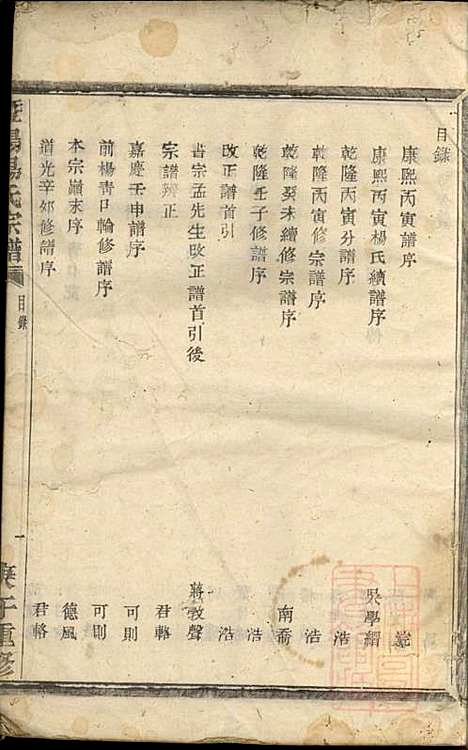 目錄
康熙丙寅譜序
康熙丙寅楊氏續譜序 吳學
乾隆丙寅分譜序 浩
乾隆丙寅修宗譜序 浩
乾隆癸未續修宗譜序 南喬
乾隆壬子修譜序 浩
改正譜首引 浩
書宗孟先生改正譜首引後 蔣敦聲
宗譜辨正 君輅
嘉慶壬申譜序 可則
前楊青口輪修譜序 可則
本宗巔末序 德風
道光辛卯修譜序 君輅
暨陽楊氏宗譜
目錄
一
庚子重修